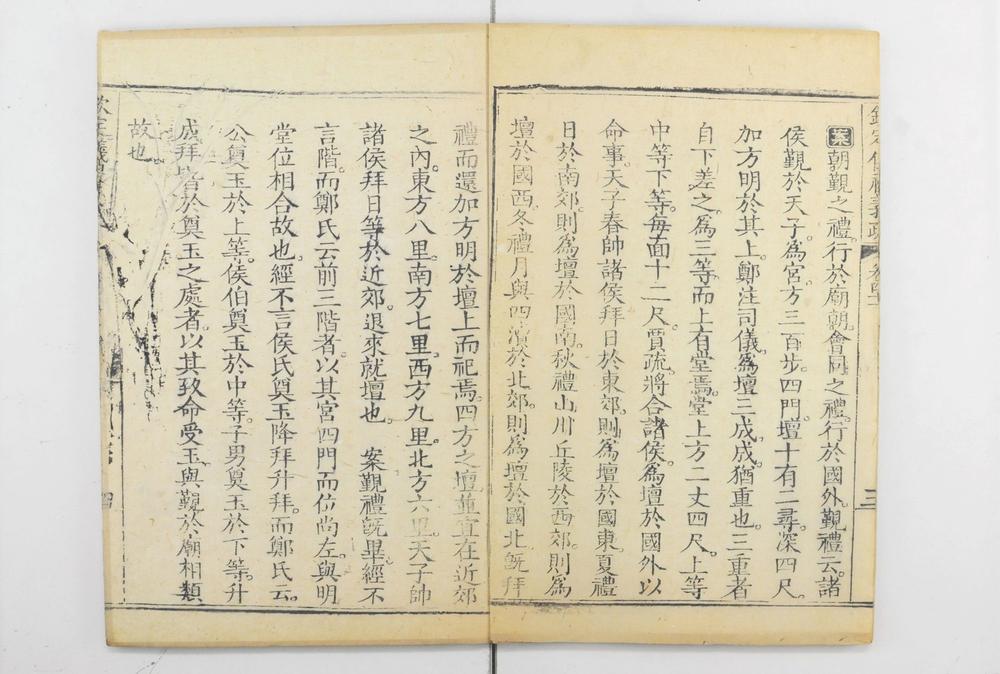 欽定儀禮義疏
三
案朝覲之禮行於廟朝會同之禮行於國外覲禮云諸
侯覲於天子。為宮方三百步。四門。壇十有二尋。深四尺。
加方明於其上。鄭注司儀為壇三成。成猶重也。三重者
自下差之為三等。而上有堂焉。堂上方二丈四尺。上等
中等下等。每面十二尺。賈疏。將合諸侯為壇於國外以
命事。天子春帥諸侯拜日於東郊。則為壇於國東。夏禮
日於南郊。則為壇於國南。秋禮山川丘陵於西郊。則為
壇於國西。冬禮月與四瀆於北郊。則為壇於國北。既拜
禮而還加方明於壇上而祀焉。四方之壇並宜在近郊
之內。東方八里。南方七里。西方九里。北方六里。天子帥
諸侯拜日等於近郊。退來就壇也。　案覲禮既畢。經不
言階。而鄭氏云前三階者。以其宮四門而位尚左。與明
堂位相合故也。經不言侯氏奠玉降拜升拜。而鄭氏云。
公奠玉於上等。侯伯奠玉於中等。子男奠玉於下等。升
成拜皆於奠玉之處者。以其致命受玉與覲於廟相類
故也。